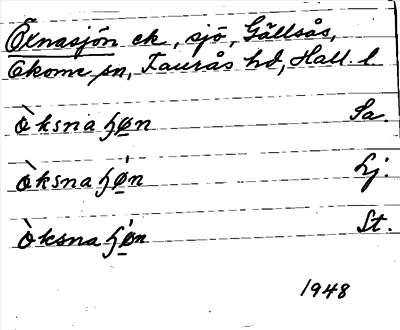 Öxnasjön ek, sjö, Gällsås,
Okome sn, Faurås hd, Hall. l
Òksnaɧøn Sa.
Òksnaɧǿn Lj.
Òksnaɧǿn St.
1948